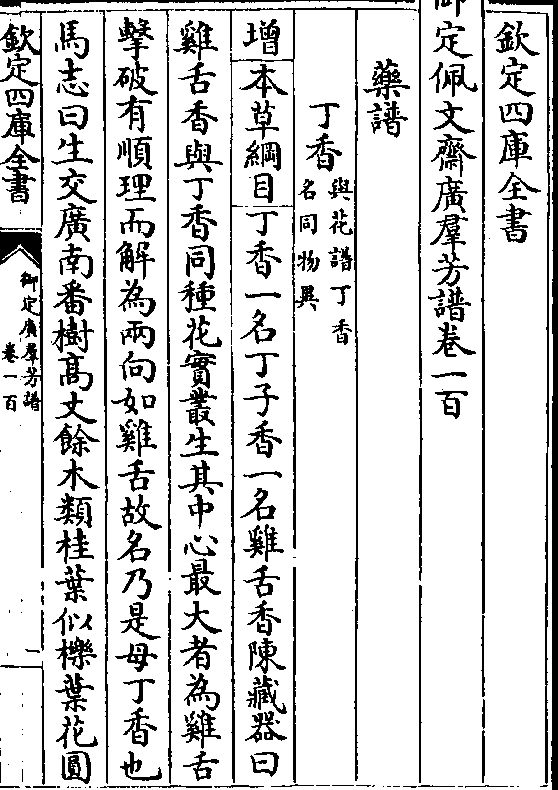 欽定四庫全書
御定佩文齋廣羣芳譜卷一百
藥譜
丁香與花譜丁香
名同物異
增本草綱目丁香一名丁子香一名雞舌香陳藏器曰
雞舌香與丁香同種花實叢生其中心最大者為雞舌
擊破有順理而解為兩向如雞舌故名乃是母丁香也
馬志曰生交廣南番樹髙丈餘木類桂葉似櫟葉花圓
欽定四庫全書
御定廣羣芳譜
卷一百
一